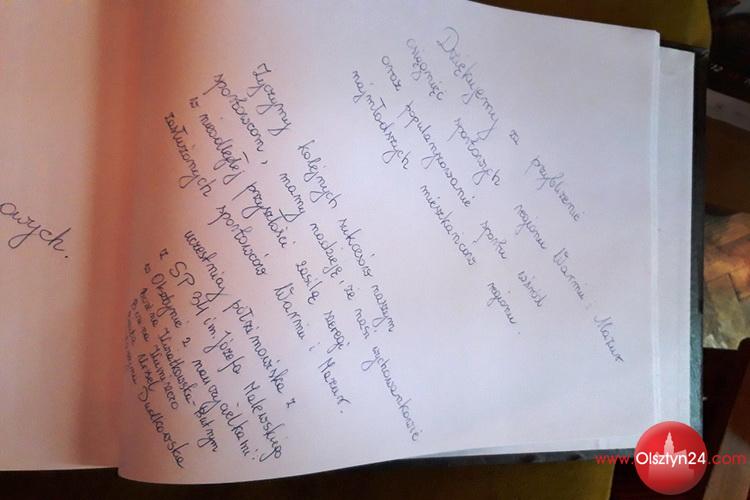 owych.
Dziękujemy za przybliżenie
osiągnięć sportowych regionu Warmii i Mazur
oraz popularyzowanie sportu wśród
najmłodszych mieszkańców regionu.
Życzymy kolejnych sukcesów naszym
sportowcom, mamy nadzieję, że nasi wychowankowie
w nieodległej przyszłości zasilą szeregi
zasłużonych sportowców Warmii i Mazur.
uczestnicy półzimowiska z
z SP 34 im. Józefa Malewskiego
w Olsztynie z nauczycielkami:
Dudkowska
www.Olsztyn24.com